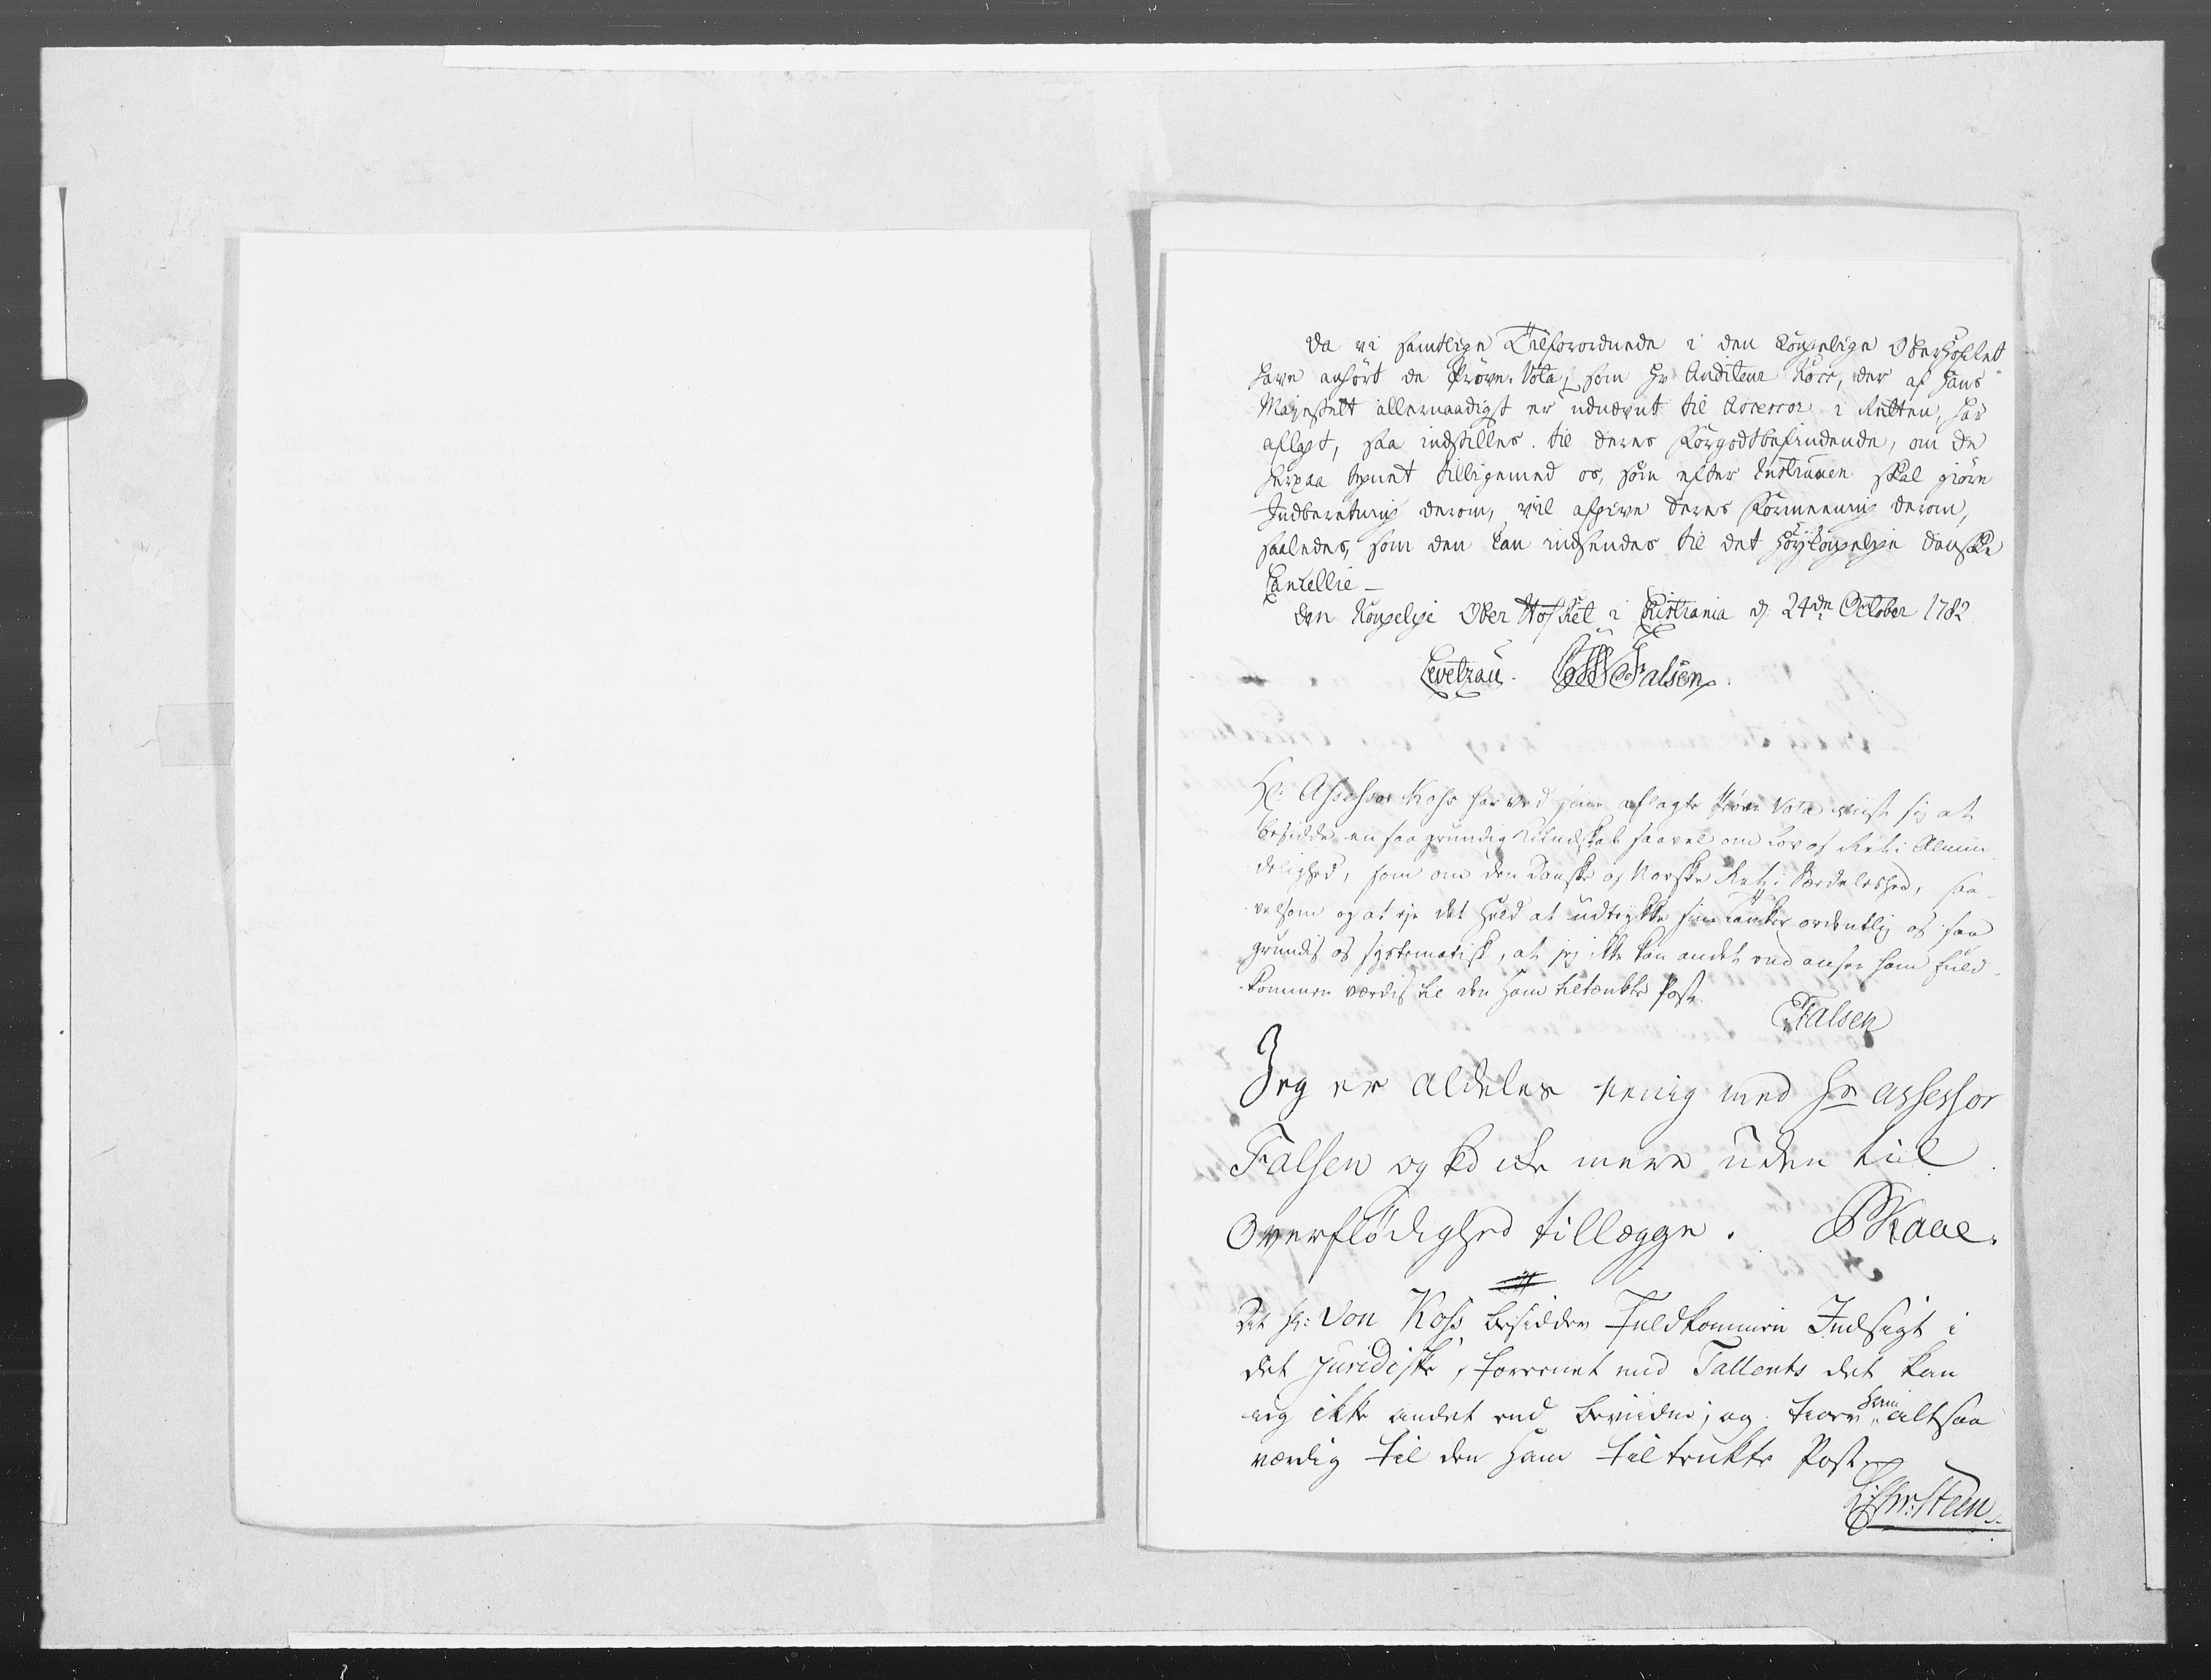 Da vi samtlige Tilforordnede i den Kongelige OberHofRet
have anhørt de Prøve-Vota, som Hr Auditeur Koss, der af Hans
Majestett allernaadigst er udnævnt til Assessor i Retten, har
aflagt, saa indstilles til deres Forgodtbefindende, om De
herpaa tegnet tilligemed os, som efter Instruxen skal giøre
Indberetning derom, vil afgive deres Formeening derom,
saaledes, som den kan indsendes til det Høykongelige danske
Cancellie –
Den Kongelige Ober Hof Ret i Christiania d. 24de October 1782
Levetzau. Falsen.
Hr: Assessor Koss har ved sine aflagte Prøve Vota viist sig at
besidde en saa grundig Kundskab saavel om Lov og Ret i Almin
delighed, som om den Danske og Norske Ret i Særdeleshed, saa
velsom og at eje det Held at udtrykke sine Tanker ordentlig og saa
grundig og systematisk, at jeg ikke kan andet end ansee ham fuld
kommen værdig til den Ham tiltænkte Post.
Falsen
Jeg er aldeles eenig med Hr assessor
Falsen og ved ikke mere uden til
Overflödighed tillægge. Kaae.
At Hr: Von Koss besidder Fuldkommen Indsigt i
det Juridiske, foreenet med Tallents det kan
ieg ikke andet end bevidne; og troer ham altsaa
værdig til den Ham tiltænkte Post.
Chr: Steen